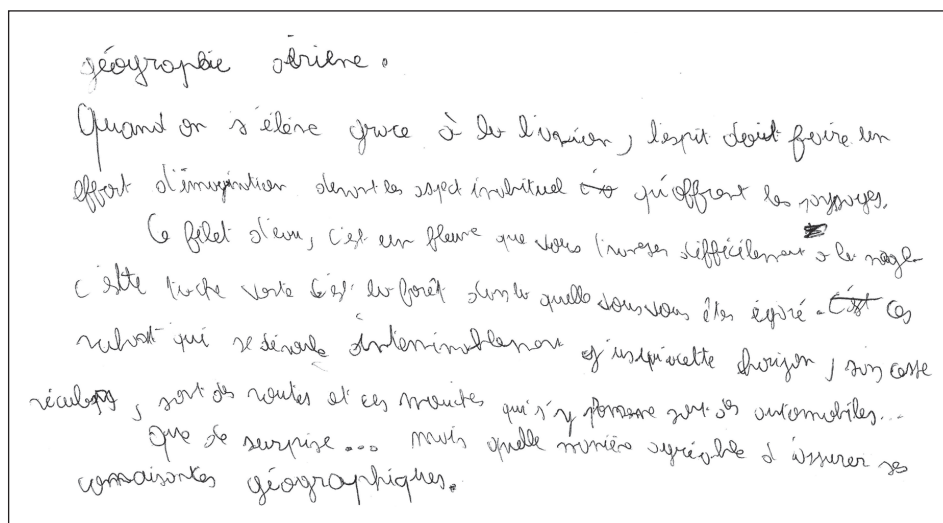 géographie aérienne.
Quand on s'élève grace à la l'avion, l'esprit doit faire un
effort d'imagination devant les aspect inabituel qu'offrent les paysages.
Ce filet d'eau, c'est un fleuve que vous traverser difficilement a la nage
cette tache verte c'est la forêt dans la quelle vous vous êtes égaré. Ces
ruban qui se déroule interminablement jusqu'a cette horizon, sans cesse
reculer, sont des routes et ces mouches qui s'y sont des automobiles...
Que de surprise... mais quelle manière agréable d'assurer ses
connaisantes géographiques.